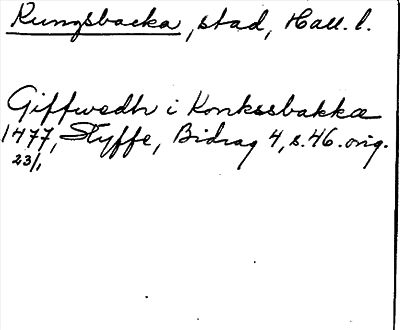 Kungsbacka, stad, Hall. l.
Giffwedh i Konkssbakka
1477, Styffe, Bidrag 4, s. 46. orig.
23/1